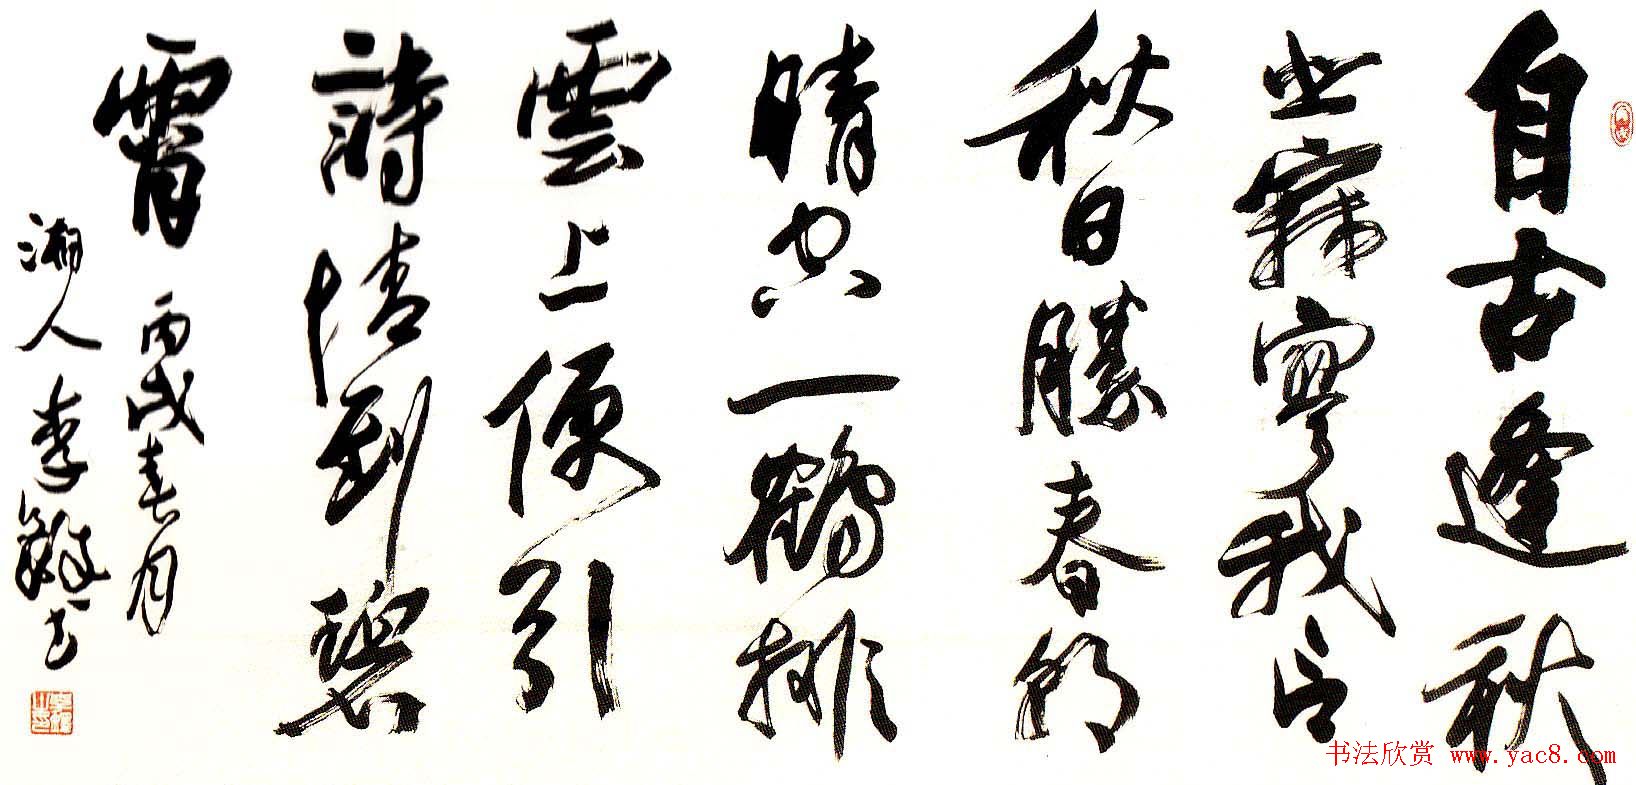 自古逢秋
悲寂寥我言
秋日勝春朝
晴空一鶴排
雲上便引
詩情到碧
霄 丙戌春月
人李
书法欣赏 www.yac8.com